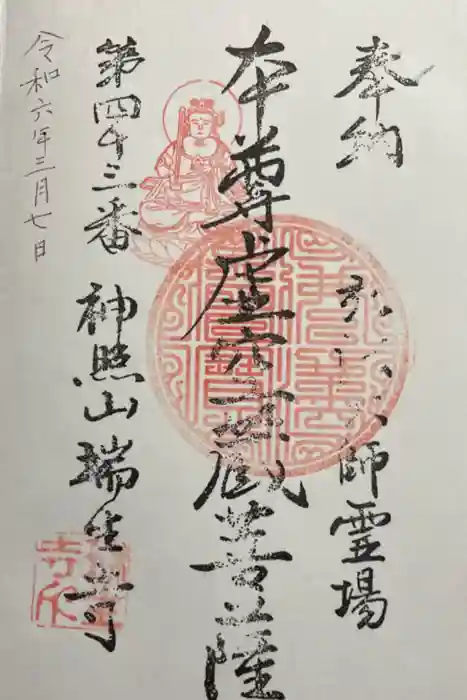 奉納
弘法大師霊場
本尊虚空蔵菩薩
第四十三番 神照山瑞生寺
令和六年三月七日